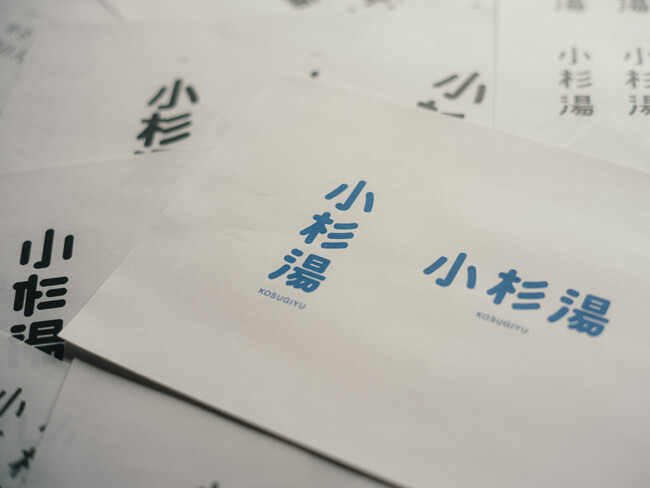 小杉湯
小杉
小
小杉湯
小杉湯
小杉湯
KOSUGIYU
小杉湯
KOSUGIYU
小杉湯